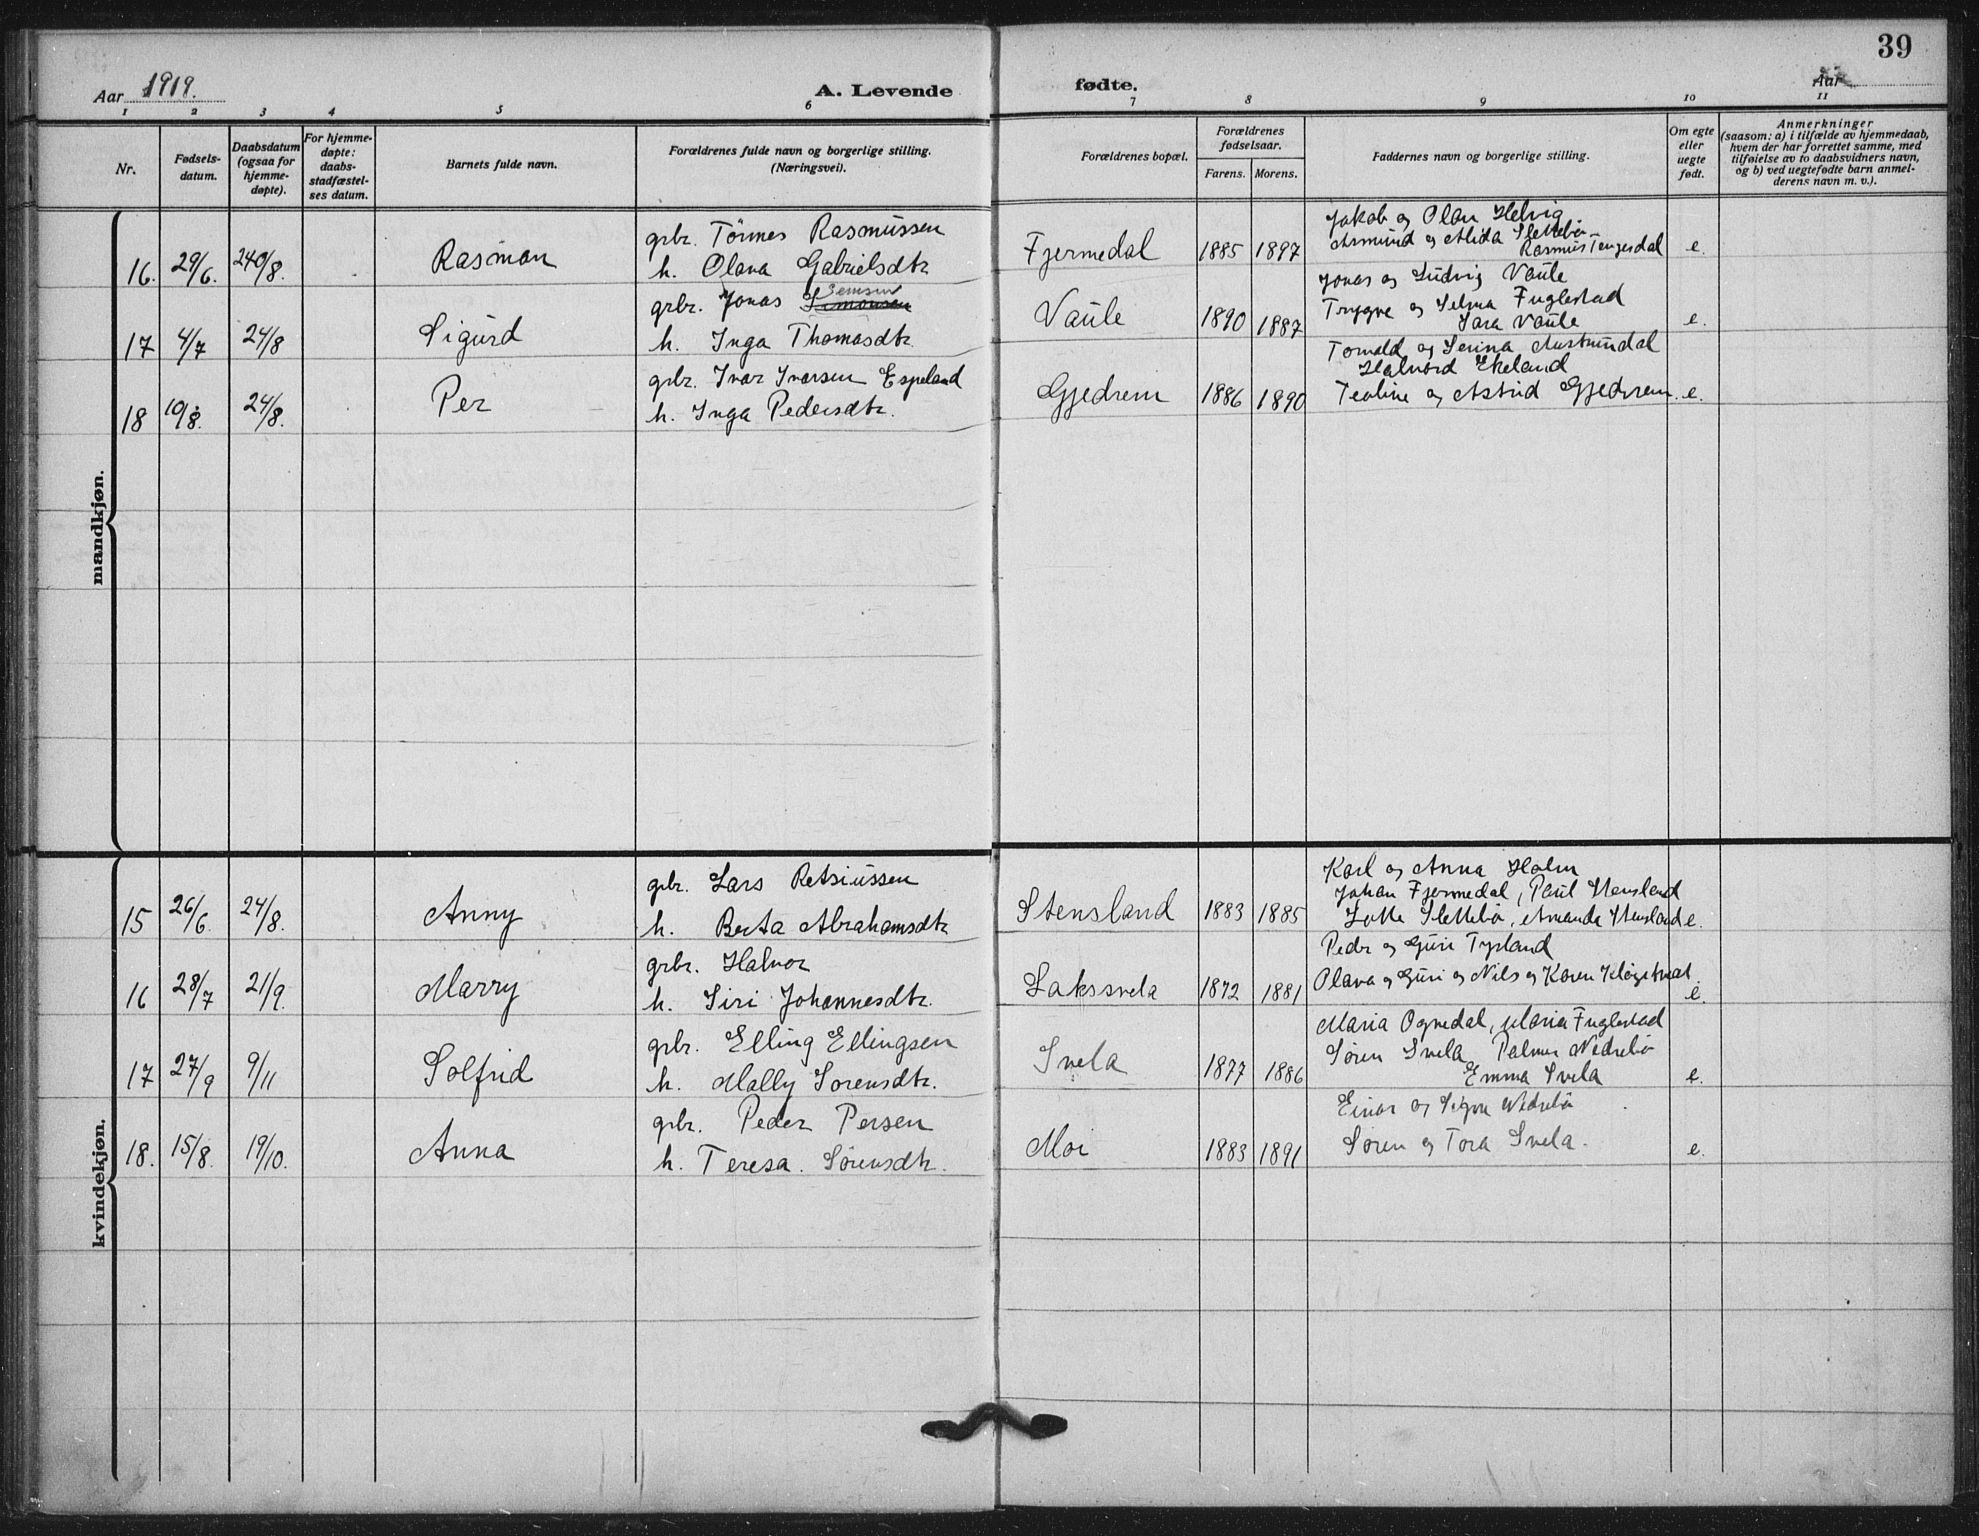 39
Aar 1919.
A. Levende fødte.
Aar
1 2 3 4 5 6 7 8 9 10 11
Nr.
Fødsels-
datum.
Daabsdatum
(ogsaa for
hjemme-
døpte).
For hjemme-
døpte:
daabs-
stadfæstel-
ses datum.
Barnets fulde navn.
Forældrenes fulde navn og borgerlige stilling.
(Næringsvei).
Forældrenes bopæl.
Forældrenes
fødselsaar.
Farens. Morens.
Faddernes navn og borgerlige stilling.
Om egte
eller
uegte
født.
Anmerkninger
(saasom: a) i tilfælde av hjemmedaab,
hvem der har forrettet samme, med
tilføielse av to daabsvidners navn,
og b) ved uegtefødte barn anmel-
derens navn m. v.).
mandkjøn.
16. 29/6. 240/8. Rasman
grbr. Tönnes Rasmussen
h. Olava Gabrielsdtr
Fjermedal 1885 1897
Jakob og Olav Helvig
Asmund og Alida Slettebö
Rasmus Tengesdal e.
17 4/7 24/8 Sigurd
grbr. Jonas Simonsen
h. Inga Thomasdtr.
Vaule 1890 1887
Jonas og Ludvig Vaule
Trygve og Selma Fuglestad
Sara Vaule e.
18 10/8. 24/8. Per
grbr. Ivar Ivarsen Espeland
h. Inga Pedersdtr.
Gjedrem 1886 1890
Tomald og Serina Austrumdal
Halvard Ekeland
Tealine og Astrid Gjedrem. e.
kvindekjøn.
15 26/6. 24/8. Anny
grbr. Lars Retsiussen
h. Berta Abrahamsdtr
Stensland 1883 1885
Karl og Anna Holm
Johan Fjermedal, Paul Stensland
Lotte Slettebö, Amanda Stensland e.
16 28/7 21/9. Marry
grbr. Halvor
h. Siri Johannesdtr.
Lakssvela 1872 1881
Peder og Guri Tysland
Olava og Guri og Nils og Karen
e.
17 27/9 9/11 Solfrid
grbr. Elling Ellingsen
h. Mally Sorensdtr.
Svela 1877 1886
Maria Ognedal, Maria Fuglestad
Søren Svela Palmer Nedrebö
Emma Svela e.
18. 15/8. 19/10. Anna
grbr. Peder Persen
h. Teresa. Sørensdtr.
Moi 1883 1891
Einar og Signe Nedrebö
Søren og Tora Svela. e.